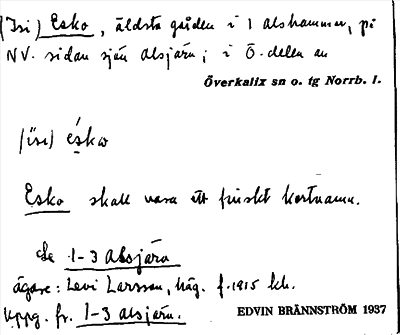 (Isi) Esko, äldsta gården i 1 alshammar, på
NV. sidan sjön alsjärv; i Ö-delen av
Överkalix sn o. tg Norrb. l.
(isi) ésko
Esko skall vara ett finskt kortnamn.
Se 1-3 alsjärv
ägare: Levi Larsson, häg. f. 1915 lch.
Uppg. fr. 1-3 alsjärv.
EDVIN BRÄNNSTRÖM 1937